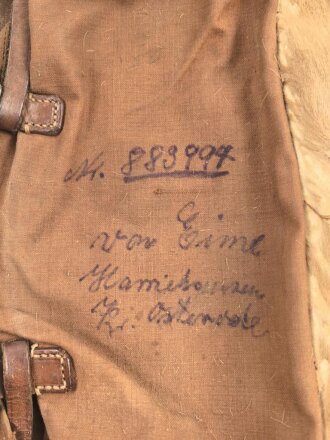 Nr. 883997
von Eime
Kr. Osterode